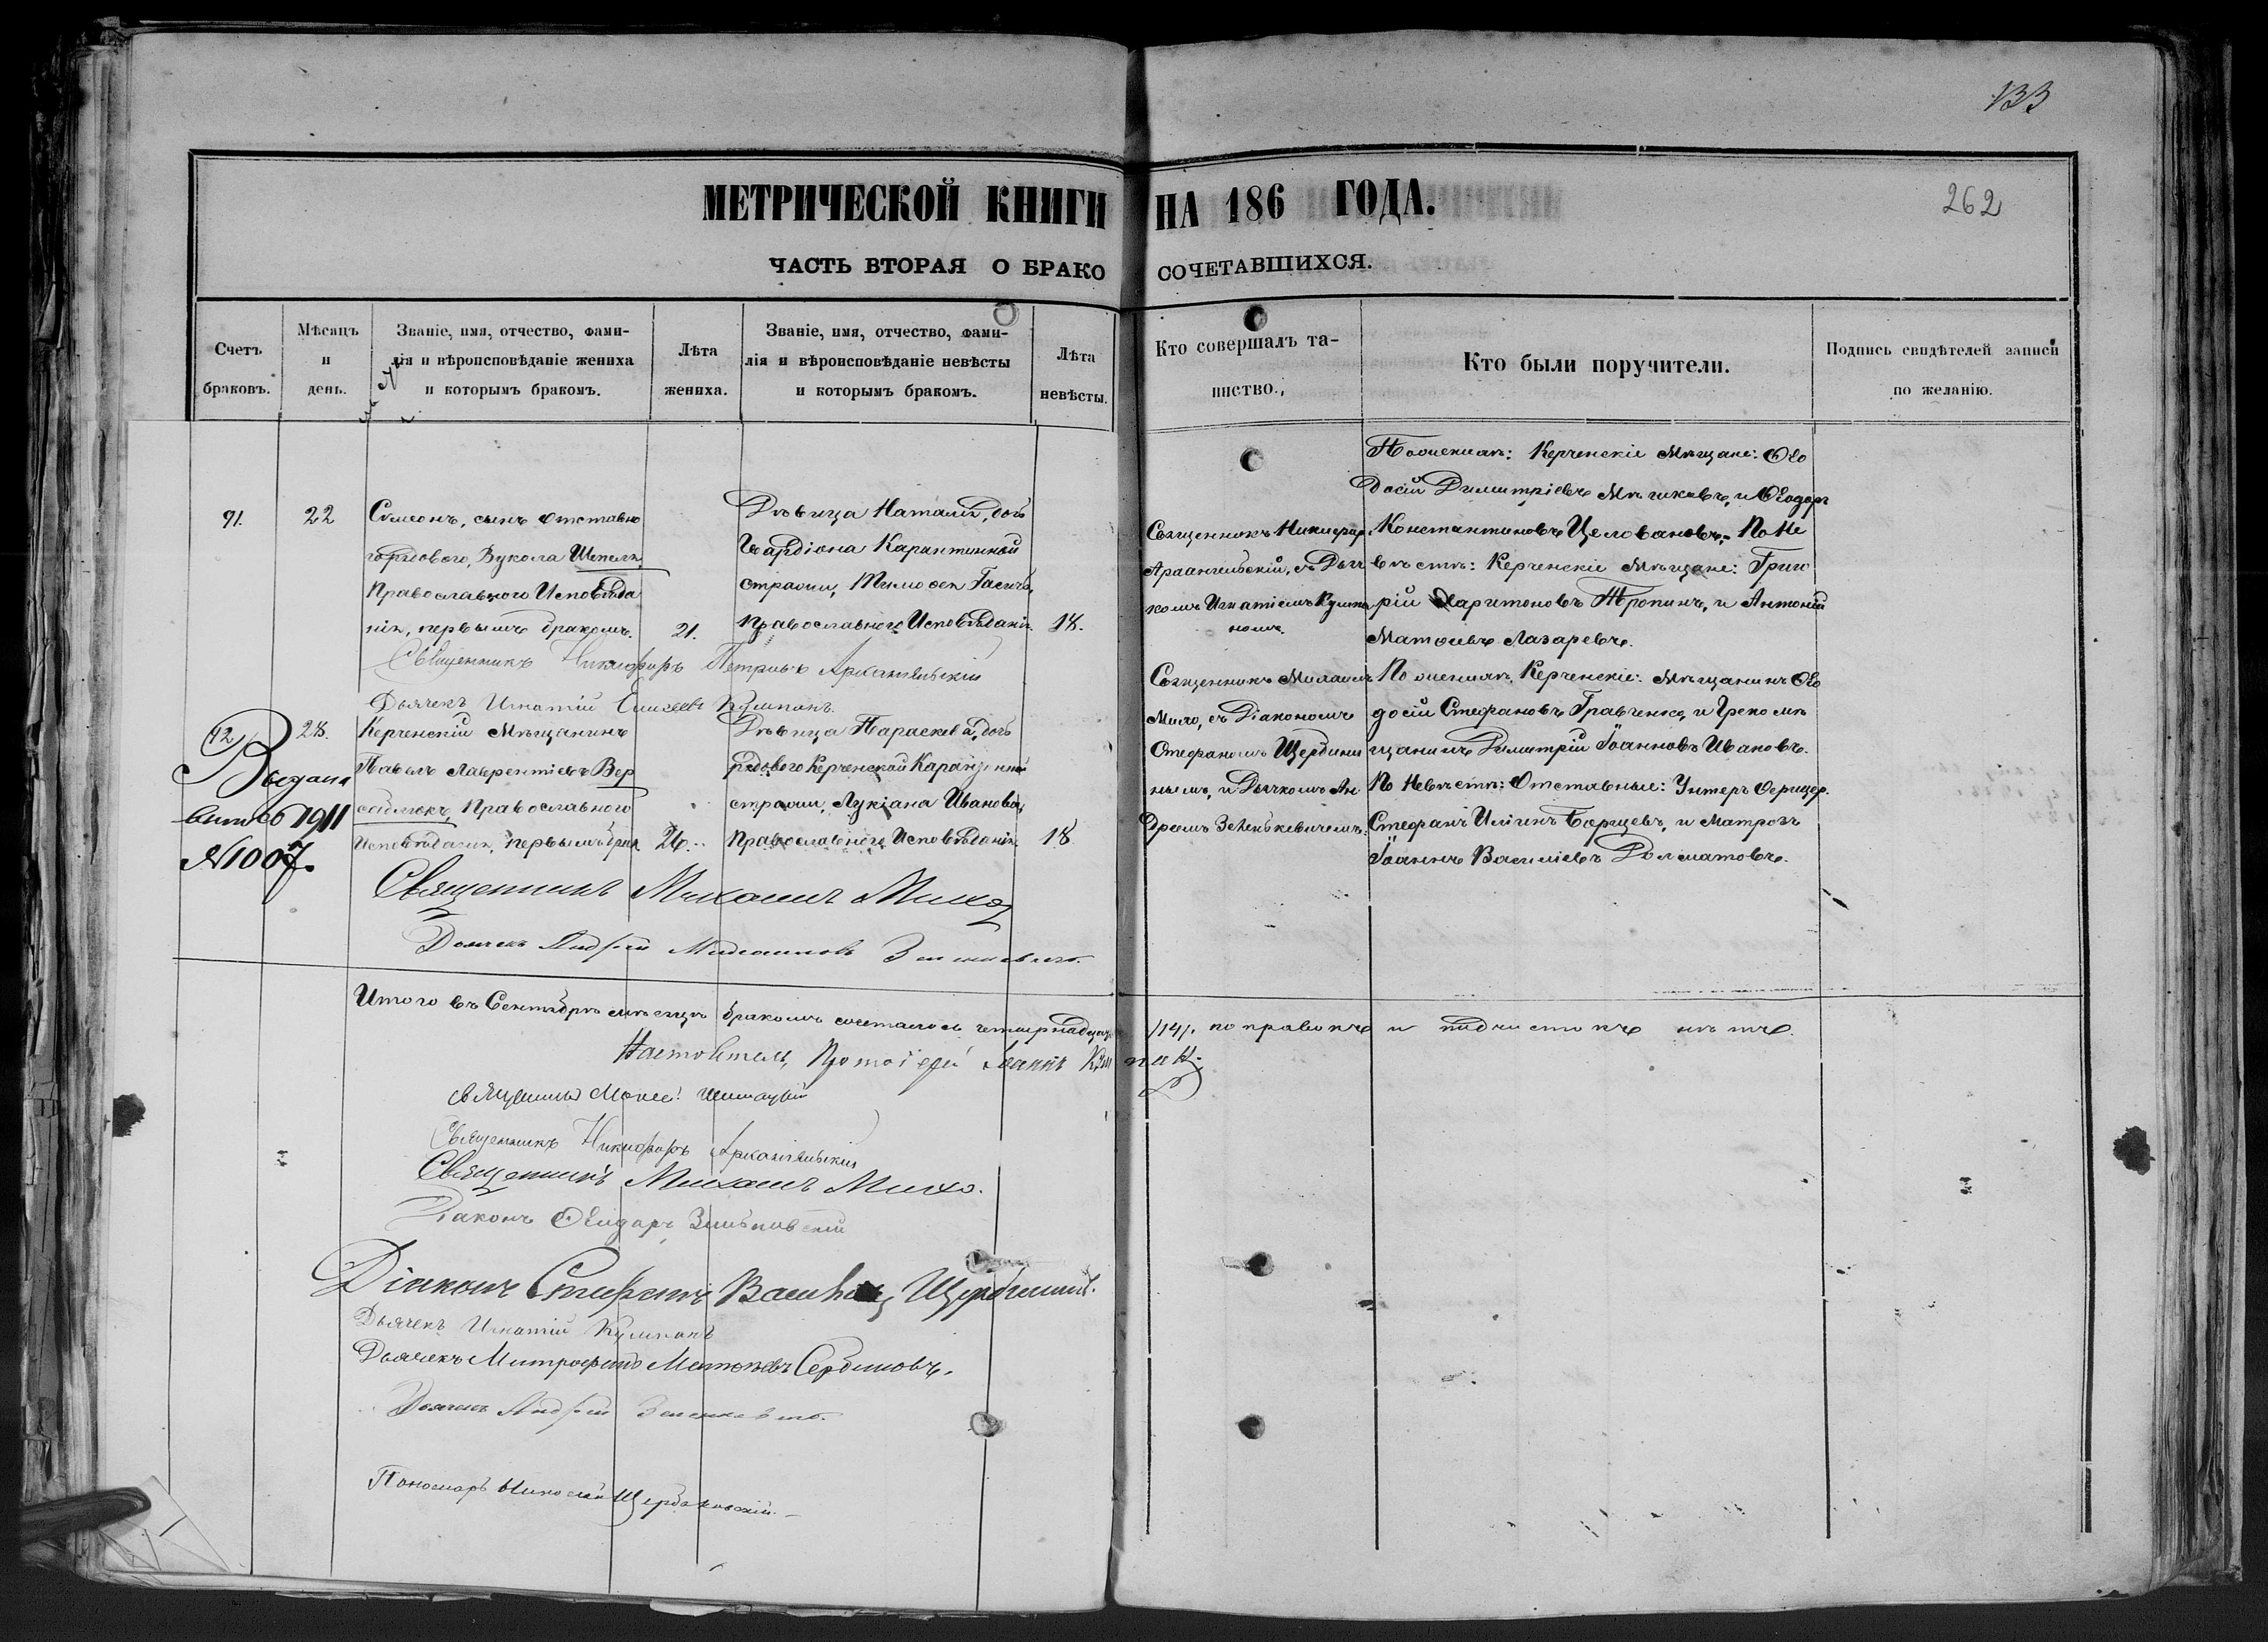 133
МЕТРИЧЕСКОЙ КНИГИ НА 186 ГОДА.
262
ЧАСТЬ ВТОРАЯ О БРАКОСОЧЕТАВШИХСЯ.
Счетъ браковъ.
Мѣсяцъ и день.
Званіе, имя, отчество, фами-
лія и вѣроисповѣданіе жениха
и которымъ бракомъ.
Лѣта
жениха.
Званіе, имя, отчество, фами-
лія и вѣроисповѣданіе невѣсты
и которымъ бракомъ.
Лѣта
невѣсты.
Кто совершалъ та-
инство.
Кто были поручители.
Подпись свидѣтелей записи
по желанію.
22
Симеонъ, сынъ отставно
го рядового, Вукола
Православнаго Исповѣда
нія, первымъ бракомъ.
21.
Дѣвица Наталія, дочь
Гвардіона Карантинной
стражи, Тимофея
Православнаго Исповѣданія.
18.
Священникъ Никифоръ
Архангельскій, съ Дьяч
комъ Игнатіемъ Кумпа
номъ.
По женихѣ: Керченскіе Мѣщане: Ѳео
досій Димитріевъ и Ѳеодоръ
Константиновъ Целовановъ. По Не
вѣстѣ: Керченскіе Мѣщане: Григо
рій Харитоновъ Тропинъ, и Антоній
Матѳіевъ Лазаревъ.
Священникъ Никифоръ Петровъ Архангельскій
Дьячекъ Игнатій Кумпанъ.
12
28.
Выдана
1911
№ 1007.
Керченскій Мѣщанинъ
Павелъ Лаврентіевъ Вер
Православнаго
Исповѣданія, первымъ брак.
26.
Дѣвица Параскева, дочь
рядового Керченской Карантинной
стражи, Лукіана Иванова,
Православнаго Исповѣданія
18
Священникъ Михаилъ
Михо, съ Діакономъ
Стефаномъ Щербини
нымъ, и Дьячкомъ Ан
дреемъ Зенькевичемъ.
По женихѣ, Керченскіе: Мѣщанинъ Ѳео
досій Стефановъ Гравченко, и Греко мѣ
щанинъ Димитрій Іоанновъ Ивановъ.
По Невѣстѣ: Отставные: Унтеръ Офицер.
Стефанъ Иліинъ Борщевъ, и Матрозъ
Іоаннъ Василіевъ Долматовъ.
Священникъ Михаилъ Михо
Дьячекъ Андрей Михайловъ Зенькевичъ.
Итого въ Сентябрѣ мѣсяцѣ бракомъ сочеталось четырнадцать /14/. поправокъ и подчистокъ нѣтъ.
Настоятель, Протоіерей Іоаннъ
Священникъ
Священникъ Никифоръ Архангельскій
Священникъ Михаилъ Михо.
Діаконъ Ѳеодоръ
Діаконъ Стефанъ Щербининъ.
Дьячекъ Игнатій Кумпанъ
Дьячекъ Митрофанъ Матѳіевъ Сербиновъ.
Дьячекъ Андрей Зенькевичъ.
Пономарь Николай Щербаковскій.